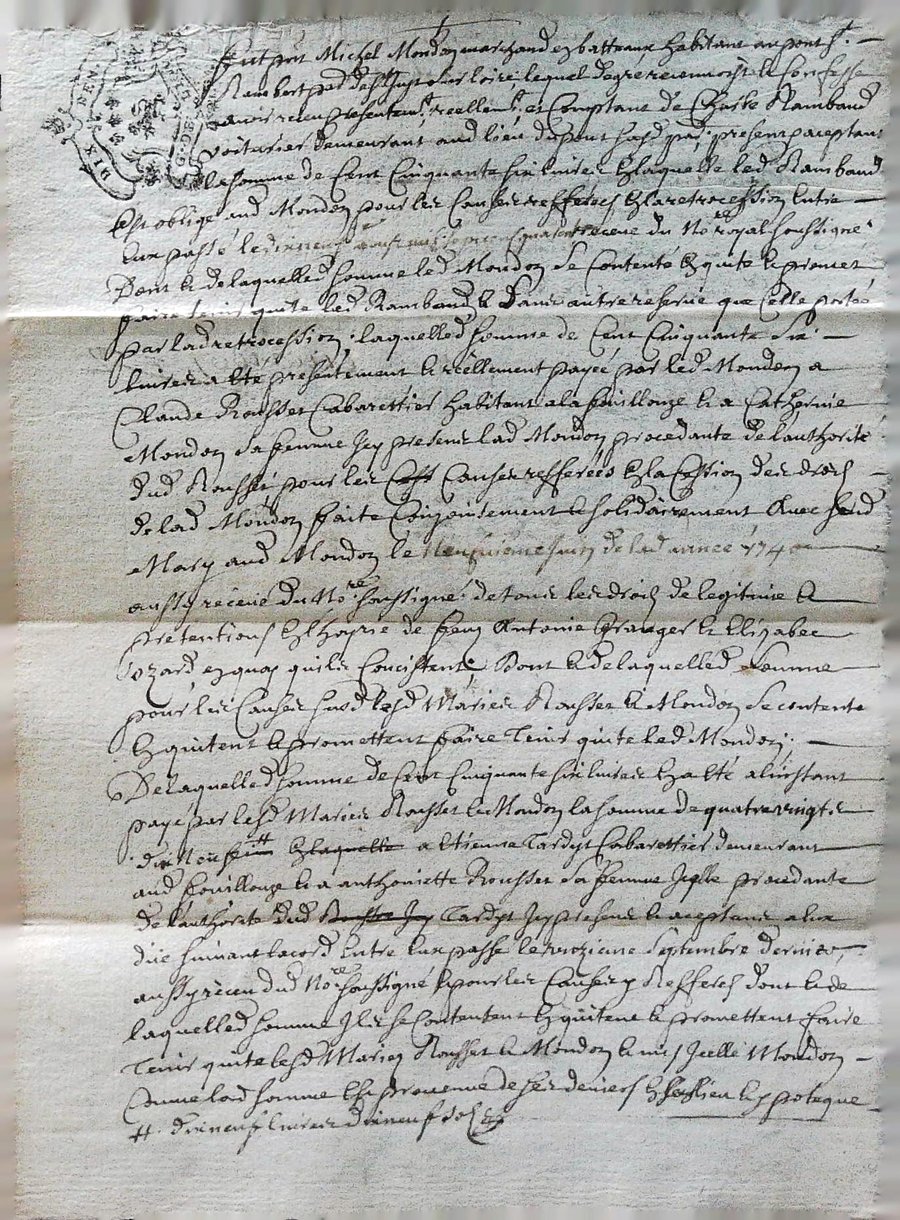 DIX DEN
fut pnt Michel Mondon marchand en batteaux habitant au pont St
Rambert lequel de gré reconnoist & confesse
avoir receu presentemt reellemt et Comptant de Rambaud
voiturier demeurant aud lieu du pont susd pnt present acceptant
la somme de Cent Cinquante six livres En laquelle led Rambaud
Est obligé aud Mondon pour les Causes refferées En la retrocession Entre
Eux passé le receue du No.re royal soussigné
Dont & de laquelled somme led Mondon se Contente En quite & promet
faire tenir quite led Rambaud & sans autre reserve que Celle portée
par lad retrocession, laquelled somme de Cent Cinquante six
livres a Esté presentement & reellement payée par led Mondon a
Claude Rousset Cabarettier habitant a la fouillouze & a Catherine
Mondon sa femme Icy presens lad Mondon procedante de l'authorité
dud Rousset pour les Causes refferées En la Cession des droits
de lad Mondon faite Conjointement & solidairement Avec sond
Mary aud Mondon le de lad année 1740
aussy receue du No.re soussigné de tous les droits de legitime &
pretentions En l'hoyrie de feu Antoine Granger & Elizabee
ozard en quoy qu'ils Concistent; Dont & de laquelled somme
pour les Causes susd lesd Mariés Rousset & Mondon se contente
En quitent & promettent faire tenir quite led Mondon;
De laquelled somme de Cent Cinquante six livres En a Esté a l'instant
payé par lesd Mariés Rousset & Mondon la somme de quatre vingts
dix Neuf # En laquelle a Etienne Tardy Cabarettier demeurant
aud fouillouze & a anthoinette Rousset sa femme Icelle procedante
de l'authorité dud Rousset Icy Tardy Icy presens & aceptans a Eux
düe suivant l'acord Entre Eux passe le onzieme Septembre dernier,
aussy receu dud No.re soussigné & pour les Causes y Refferées dont & de
laquelled somme Ils se Contentent En quitent & promettent faire
Tenir quite lesd Mariés Rousset & Mondon & Icelle Mondon
Comme lad somme Est provenue de ses deniers En & ypoteque
# dixneuf livres dixneuf sols